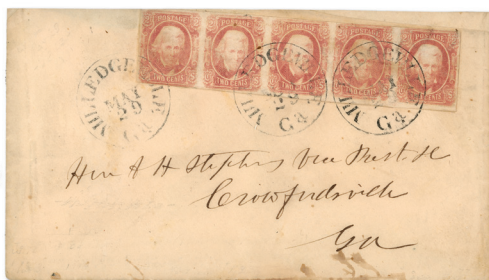 POSTAGE POSTAGE POSTAGE POSTAGE POSTAGE
TWO CENTS TWO CENTS TWO CENTS TWO CENTS TWO CENTS
MILLEDGEVILLE
MAY
29
Ga.
MILLEDGEVILLE
29
Ga.
MILLEDGEVILLE
Ga.
Hon A H Stephens Vice Prest.
Crawfordsville
Ga